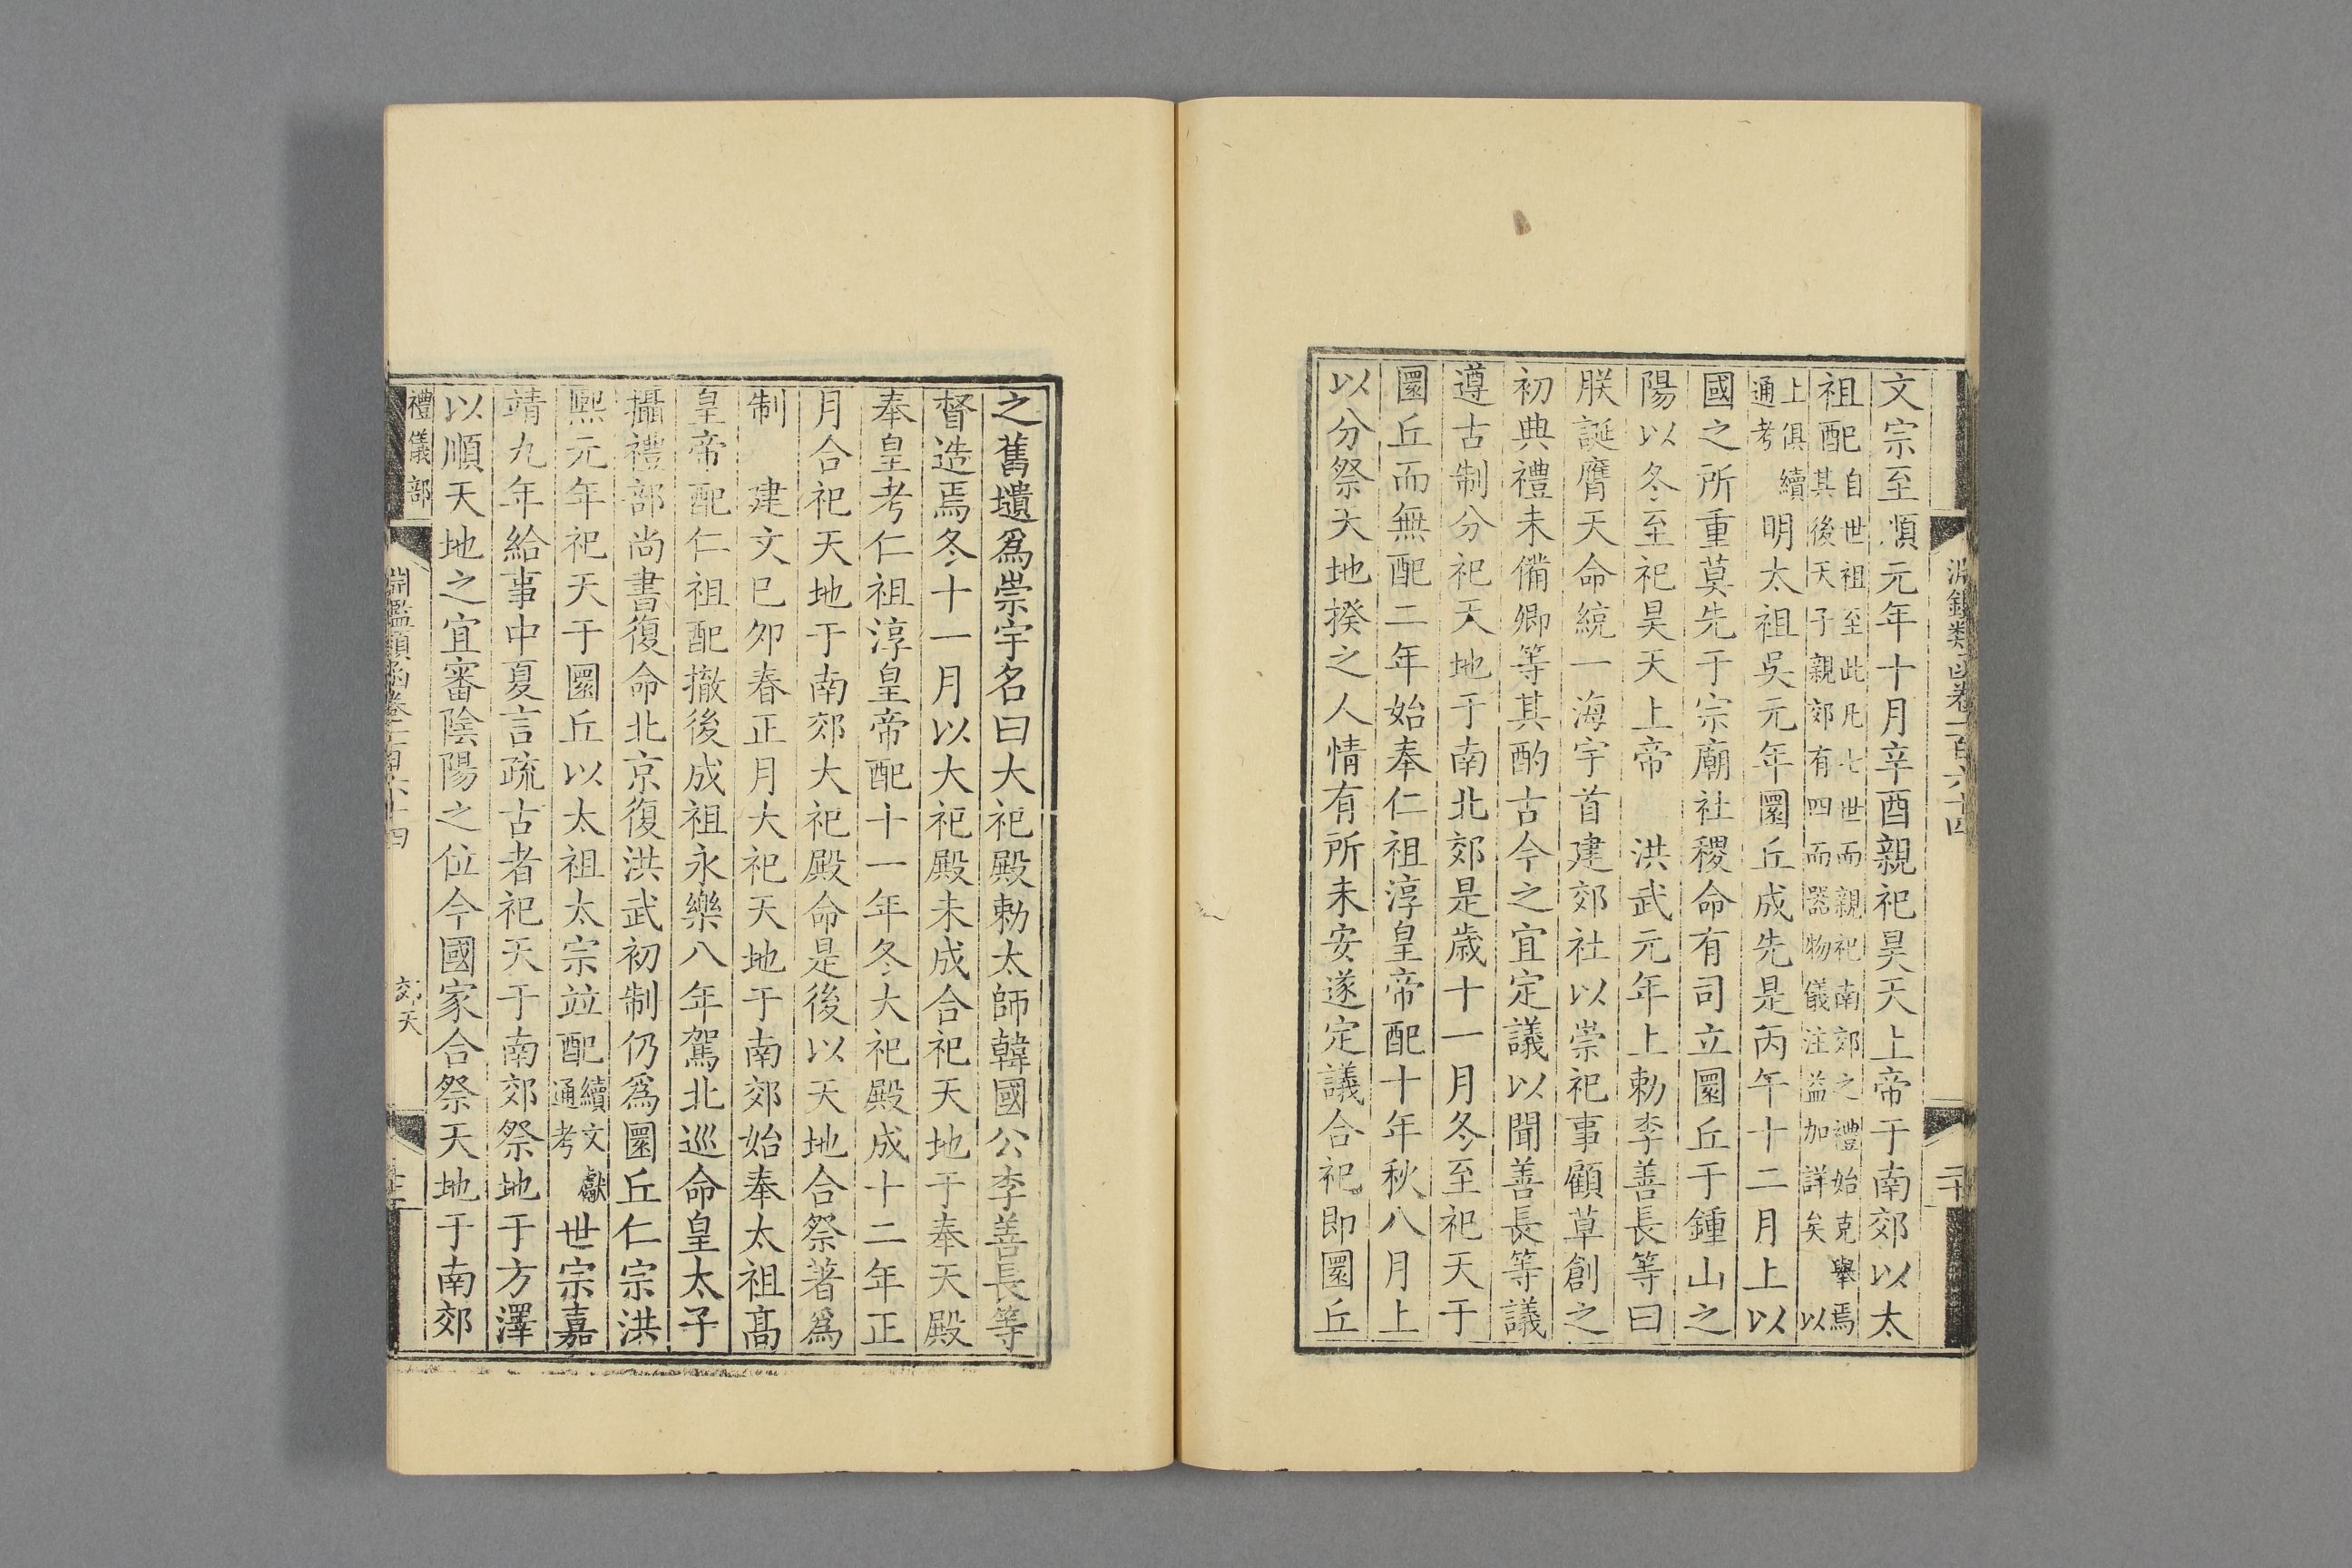 文宗至順元年十月辛酉親祀昊天上帝于南郊以太
祖配自世祖至此凡七世而親祀南郊之禮始克舉焉以
其後天子親郊有四而器物儀注益加詳矣
上俱續通考明太祖吳元年圜丘成先是丙午十二月上以
國之所重莫先于宗廟社稷命有司立圜丘于鍾山之
陽以冬至祀昊天上帝　洪武元年上勅李善長等曰
朕誕膺天命統一海宇首建郊社以崇祀事顧草創之
初典禮未備卿等其酌古今之宜定議以聞善長等議
遵古制分祀天地于南北郊是歲十一月冬至祀天于
圜丘而無配二年始奉仁祖淳皇帝配十年秋八月上
以分祭天地揆之人情有所未安遂定議合祀即圜丘
之舊壝爲崇宇名曰大祀殿勅太師韓國公李善長等
督造焉冬十一月以大祀殿未成合祀天地于奉天殿
奉皇考仁祖淳皇帝配十一年冬大祀殿成十二年正
月合祀天地于南郊大祀殿命是後以天地合祭著爲
制　建文己卯春正月大祀天地于南郊始奉太祖高
皇帝配仁祖配撤後成祖永樂八年駕北巡命皇太子
攝禮部尚書復命北京復洪武初制仍爲圜丘仁宗洪
熙元年祀天于圜丘以太祖太宗竝配續文獻通考世宗嘉
靖九年給事中夏言疏古者祀天于南郊祭地于方澤
以順天地之宜審陰陽之位今國家合祭天地于南郊
禮儀部
淵鑑類函卷一百六十四
郊天